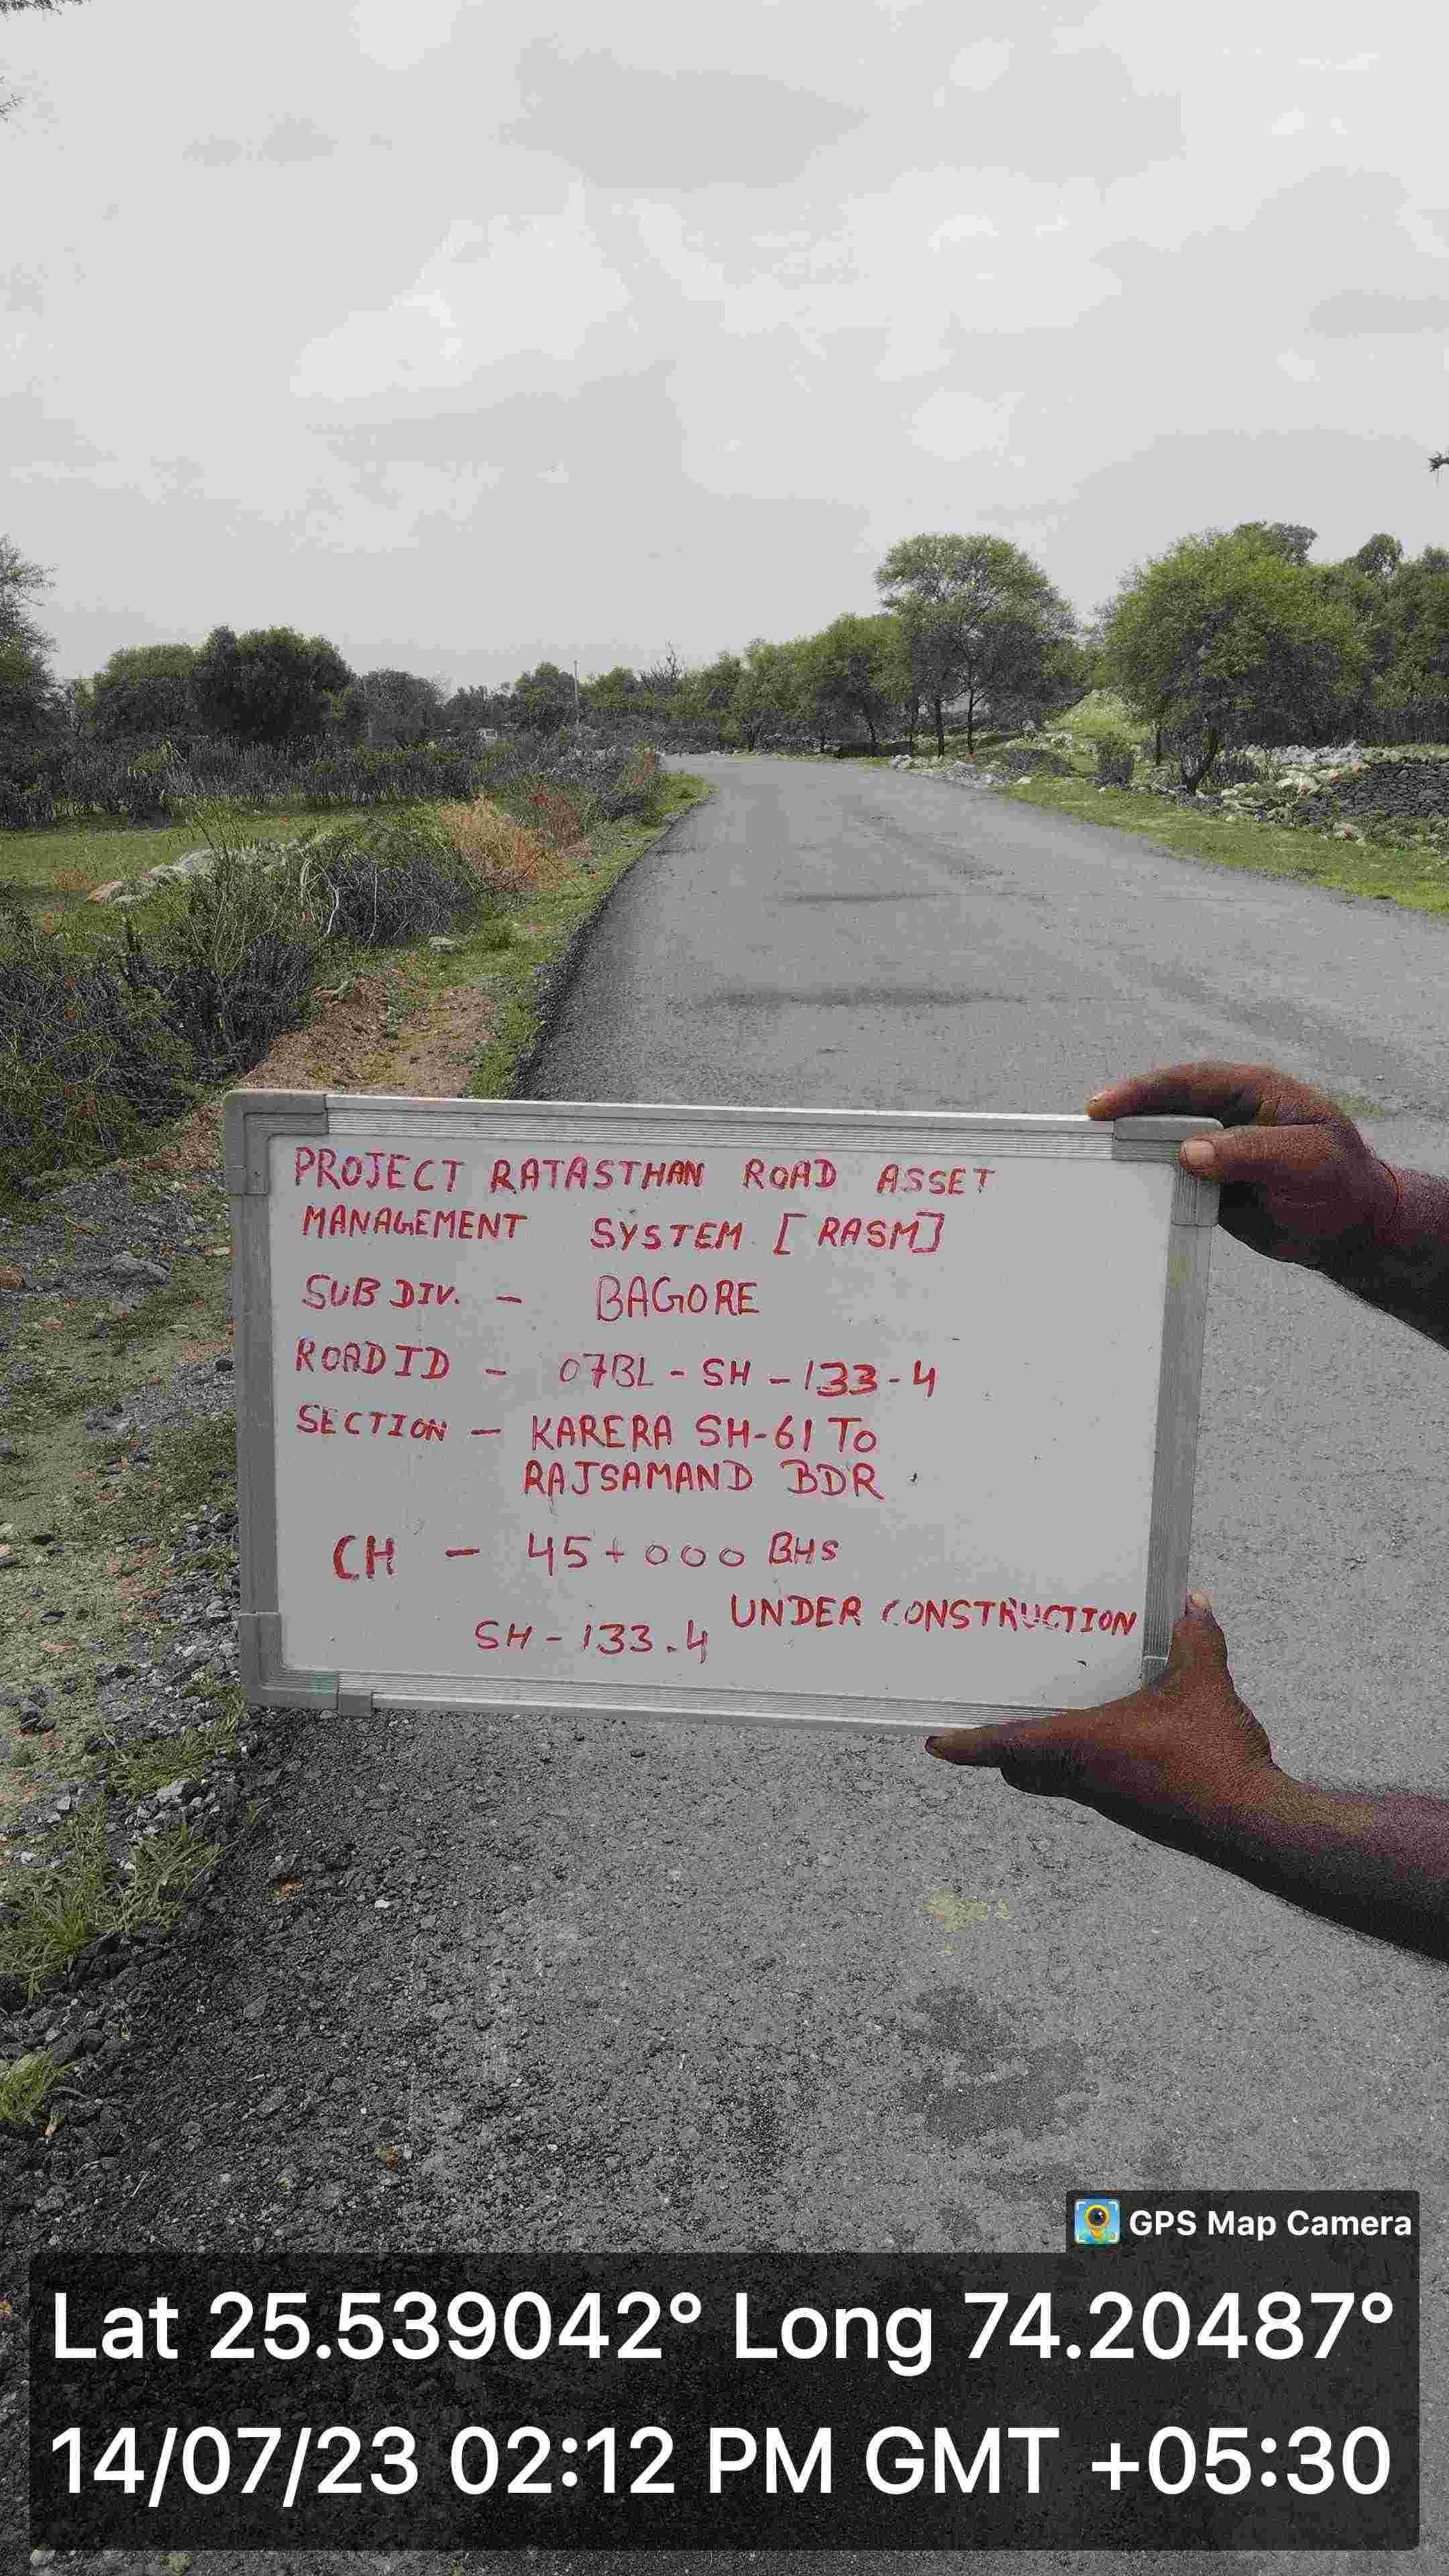 PROJECT RATASTHAN ROAD ASSET
MANAGEMENT SYSTEM [RASM]
SUB DIV. - BAGORE
ROAD ID - 07BL - SH - 133 - 4
SECTION - KARERA SH-61 TO
RAJSAMAND BDR
CH - 45+000 BHS
UNDER CONSTRUCTION
SH - 133.4
GPS Map Camera
Lat 25.539042° Long 74.20487°
14/07/23 02:12 PM GMT +05:30